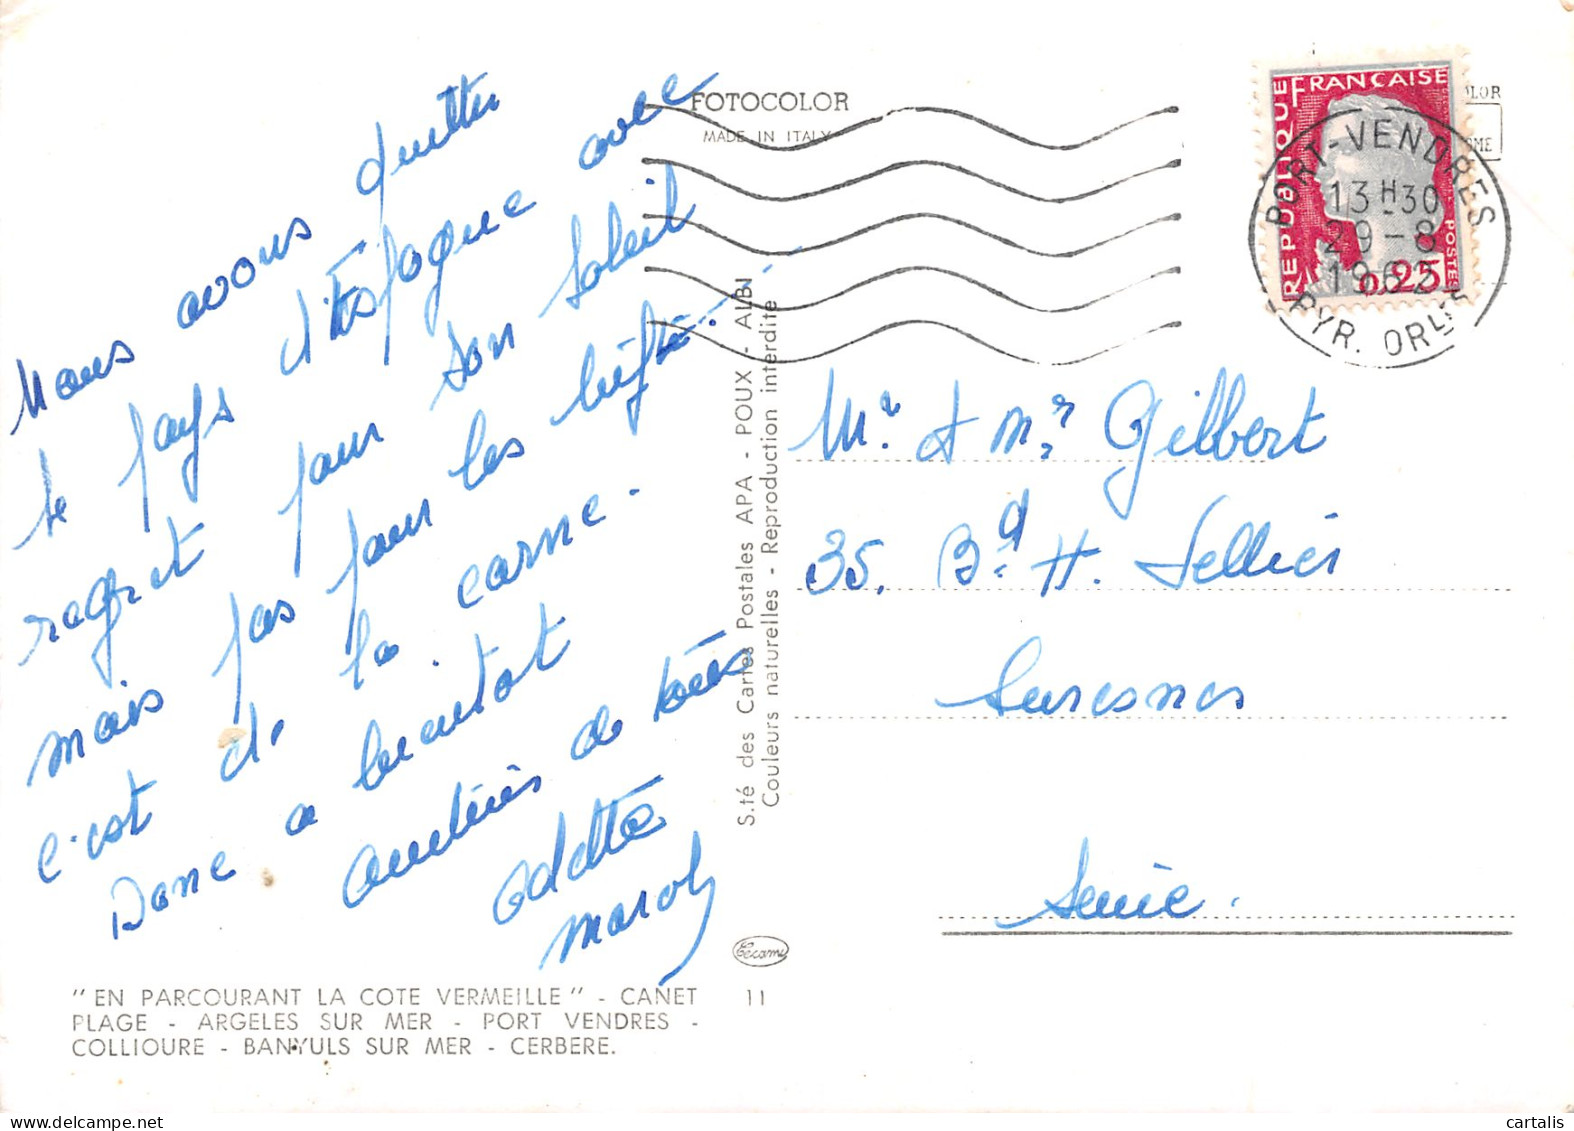 Nous avons quitter
le pays d'Espagne avec
regret pour son soleil
mais pas pour les
c'est de la carne.
Donc a bientot
amitiés de tous
Odette
Marol
FOTOCOLOR
MADE IN ITALY
REPUBLIQUE FRANÇAISE
POSTES
0,25
PORT-VENDRES
13H30
29-8
PYR. ORles
Mr. & Mr Gilbert
35. Bd. H. Sellier
Suresnes
Seine.
S.té des Cartes Postales APA - POUX - ALBI
Couleurs naturelles - Reproduction interdite
Cecami
"EN PARCOURANT LA COTE VERMEILLE" - CANET
PLAGE - ARGELES SUR MER - PORT VENDRES -
COLLIOURE - BANYULS SUR MER - CERBERE.
11
cartalis.com